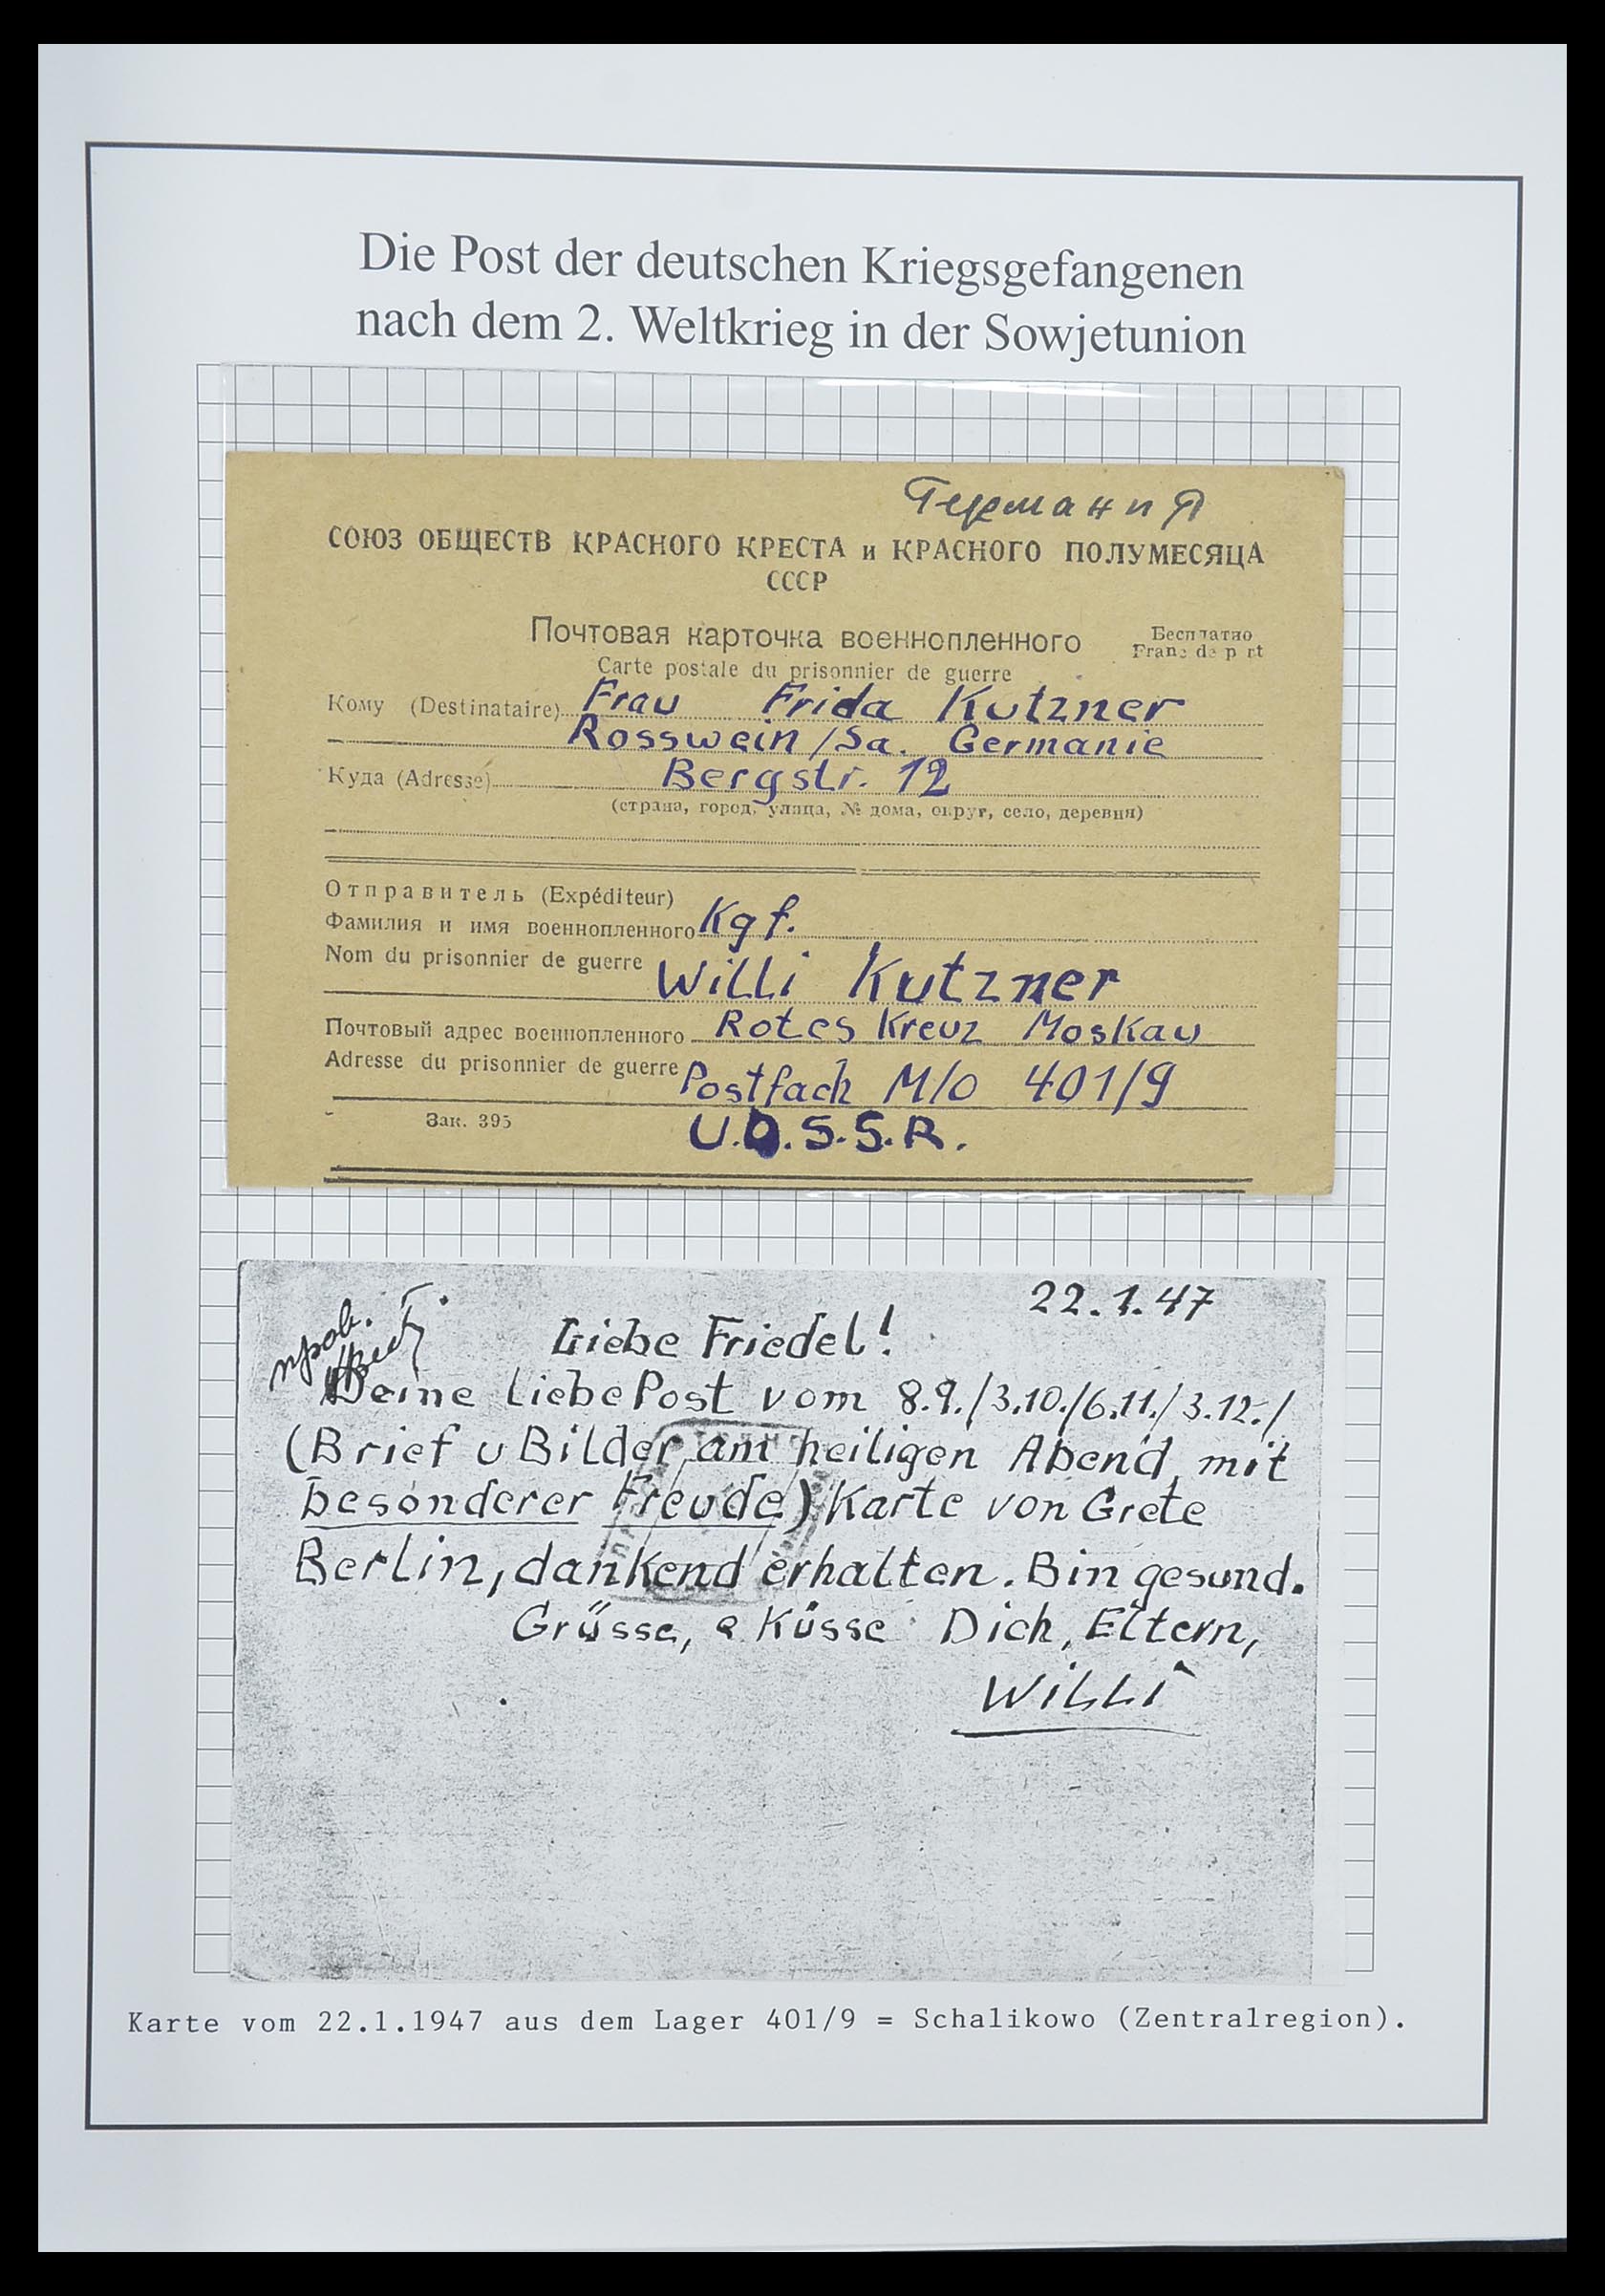 Die Post der deutschen Kriegsgefangenen
nach dem 2. Weltkrieg in der Sowjetunion
Германия
СОЮЗ ОБЩЕСТВ КРАСНОГО КРЕСТА и КРАСНОГО ПОЛУМЕСЯЦА
СССР
Почтовая карточка военнопленного
Бесплатно
Carte postale du prisonnier de guerre
Franc de port
Кому (Destinataire) Frau Frida Kutzner
Rosswein/Sa. Germanie
Куда (Adresse) Bergstr. 12
(страна, город, улица, № дома, округ, село, деревня)
Отправитель (Expéditeur)
Фамилия и имя военнопленного Kgf.
Nom du prisonnier de guerre Willi Kutzner
Почтовый адрес военнопленного Rotes Kreuz Moskau
Adresse du prisonnier de guerre Postfach M/O 401/9
Зак. 395
U.d.S.S.R.
22.1.47
пров.
Liebe Friedel!
Deine liebe Post vom 8.9./3.10./6.11./3.12./
(Brief u Bilder am heiligen Abend, mit
besonderer Freude) Karte von Grete
Berlin, dankend erhalten. Bin gesund.
Grüsse, Küsse Dich, Eltern,
Willi
Karte vom 22.1.1947 aus dem Lager 401/9 = Schalikowo (Zentralregion).